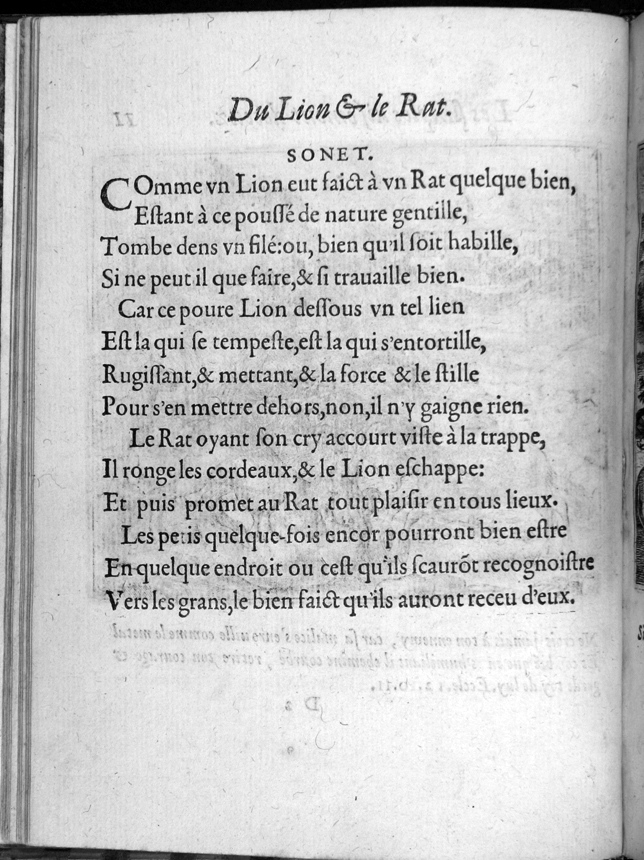 Du Lion & le Rat.
SONET.
COmme vn Lion eut faict à vn Rat quelque bien,
Eſtant à ce pouſſé de nature gentille,
Tombe dens vn filé:ou, bien qu'il ſoit habille,
Si ne peut il que faire,& ſi trauaille bien.
Car ce poure Lion deſſous vn tel lien
Eſt la qui ſe tempeſte,eſt la qui s'entortille,
Rugiſſant,& mettant,& la force & le ſtille
Pour s'en mettre dehors,non,il n'y gaigne rien.
Le Rat oyant ſon cry accourt viſte à la trappe,
Il ronge les cordeaux,& le Lion eſchappe:
Et puis promet au Rat tout plaiſir en tous lieux.
Les petis quelque-fois encor pourront bien eſtre
En quelque endroit ou ceſt qu'ils ſcaurõt recognoiſtre
Vers les grans,le bien faict qu'ils auront receu d'eux.